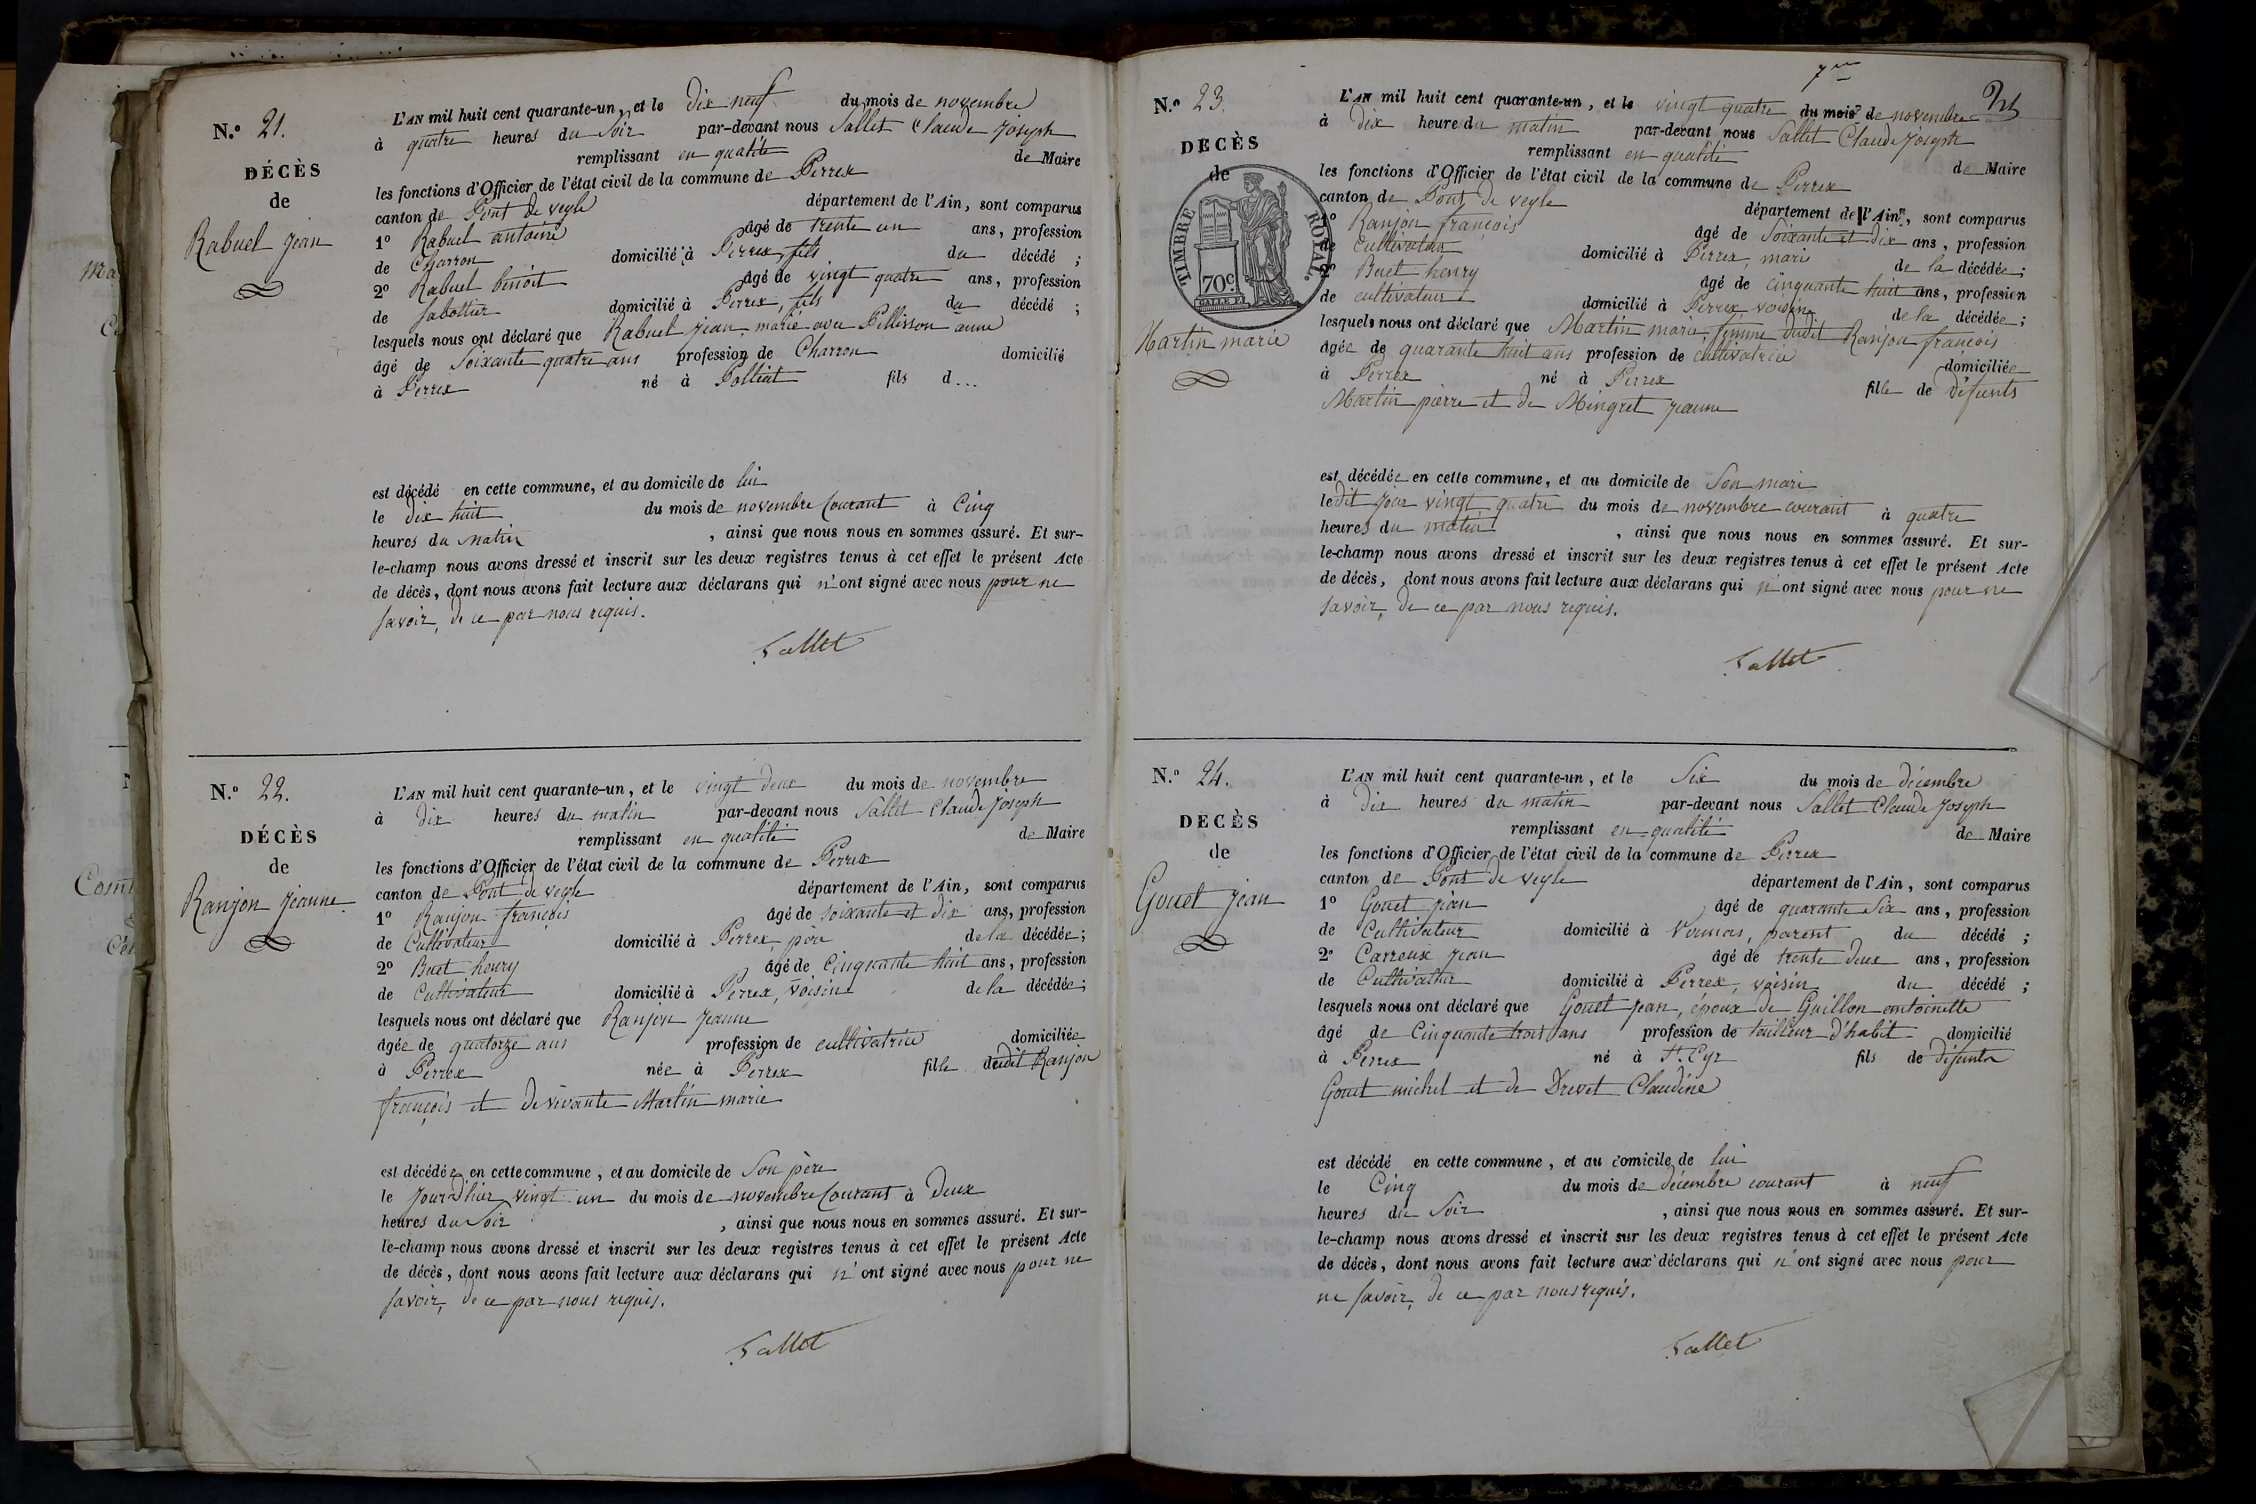 N.º 21.
DÉCÈS
de
Rabuel jean
L'AN mil huit cent quarante-un, et le dix neuf du mois de novembre
à quatre heures du soir par-devant nous Sallet Claude joseph
remplissant en qualité de Maire
les fonctions d'Officier de l'état civil de la commune de Perrex
canton de Pont de veyle département de l'Ain, sont comparus
1º Rabuel antoine âgé de trente un ans, profession
de Charron domicilié à Perrex, fils du décédé ;
2º Rabuel benoit âgé de vingt quatre ans, profession
de sabottier domicilié à Perrex, fils du décédé ;
lesquels nous ont déclaré que Rabuel jean, marié avec Pellisson anne
âgé de Soixante quatre ans profession de Charron domicilié
à Perrex né à Polliat fils d...
est décédé en cette commune, et au domicile de lui
le dix huit du mois de novembre Courant à Cinq
heures du matin , ainsi que nous nous en sommes assuré. Et sur-
le-champ nous avons dressé et inscrit sur les deux registres tenus à cet effet le présent Acte
de décès, dont nous avons fait lecture aux déclarans qui n'ont signé avec nous pour ne
savoir, de ce par nous requis.
Sallet
N.º 22.
DÉCÈS
de
Ranjon jeanne
L'AN mil huit cent quarante-un, et le vingt deux du mois de novembre
à dix heures du matin par-devant nous Sallet Claude joseph
remplissant en qualité de Maire
les fonctions d'Officier de l'état civil de la commune de Perrex
canton de Pont de veyle département de l'Ain, sont comparus
1º Ranjon françois âgé de soixante et dix ans, profession
de Cultivateur domicilié à Perrex, père de la décédée ;
2º Buet henry âgé de Cinquante huit ans, profession
de Cultivateur domicilié à Perrex, voisin de la décédée ;
lesquels nous ont déclaré que Ranjon jeanne
âgée de quatorze ans profession de cultivatrice domiciliée
à Perrex née à Perrex fille dudit Ranjon
françois et de vivante Martin marie
est décédée en cette commune, et au domicile de Son père
le jour d'hier vingt un du mois de novembre Courant à deux
heures du Soir , ainsi que nous nous en sommes assuré. Et sur-
le-champ nous avons dressé et inscrit sur les deux registres tenus à cet effet le présent Acte
de décès, dont nous avons fait lecture aux déclarans qui n'ont signé avec nous pour ne
savoir, de ce par nous requis.
Sallet
7me
N.º 23.
DECÈS
de
TIMBRE ROYAL.
70c.
Martin marie
L'AN mil huit cent quarante-un, et le vingt quatre du mois de novembre
à dix heure du matin par-devant nous Sallet Claude joseph
remplissant en qualité de Maire
les fonctions d'Officier de l'état civil de la commune de Perrex
canton de Pont de veyle département de l'Ain, sont comparus
1º Ranjon françois âgé de Soixante et dix ans, profession
de Cultivateur domicilié à Perrex, mari de la décédée ;
2º Buet henry âgé de cinquante huit ans, profession
de cultivateur domicilié à Perrex voisin de la décédée ;
lesquels nous ont déclaré que Martin marie, femme dudit Ranjon françois
âgée de quarante huit ans profession de cultivatrice domiciliée
à Perrex né à Perrex fille de défunts
Martin pierre et de Mingret jeanne
est décédée en cette commune, et au domicile de Son mari
ledit jour vingt quatre du mois de novembre courant à quatre
heures du matin , ainsi que nous nous en sommes assuré. Et sur-
le-champ nous avons dressé et inscrit sur les deux registres tenus à cet effet le présent Acte
de décès, dont nous avons fait lecture aux déclarans qui n'ont signé avec nous pour ne
savoir, de ce par nous requis.
Sallet
N.º 24.
DECÈS
de
Gouet jean
L'AN mil huit cent quarante-un, et le Six du mois de décembre
à dix heures du matin par-devant nous Sallet Claude joseph
remplissant en qualité de Maire
les fonctions d'Officier de l'état civil de la commune de Perrex
canton de Pont de veyle département de l'Ain, sont comparus
1º Gouet jean âgé de quarante Six ans, profession
de Cultivateur domicilié à parent du décédé ;
2º Carreux jean âgé de trente deux ans, profession
de Cultivateur domicilié à Perrex, voisin du décédé ;
lesquels nous ont déclaré que Gouet jean, époux de Guillon antoinette
âgé de Cinquante trois ans profession de tailleur d'habit domicilié
à Perrex né à St. Cyr fils de défunts
Gouet michel et de Drevet Claudine
est décédé en cette commune, et au domicile de lui
le Cinq du mois de décembre courant à neuf
heures du Soir , ainsi que nous nous en sommes assuré. Et sur-
le-champ nous avons dressé et inscrit sur les deux registres tenus à cet effet le présent Acte
de décès, dont nous avons fait lecture aux déclarans qui n'ont signé avec nous pour
ne savoir, de ce par nous requis.
Sallet